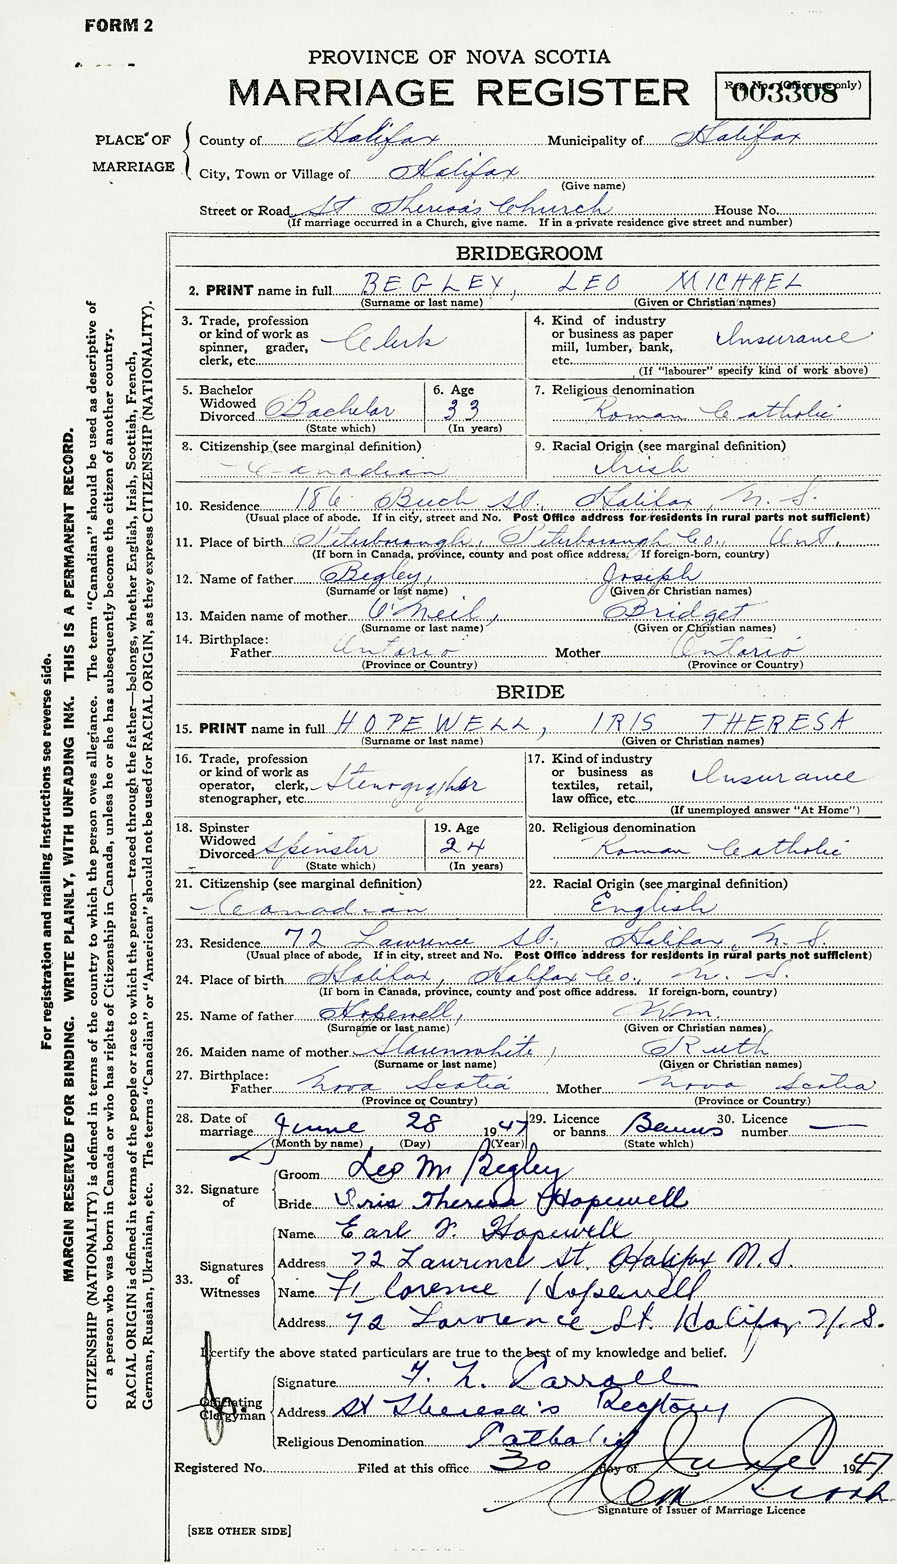 FORM 2
PROVINCE OF NOVA SCOTIA
MARRIAGE REGISTER
Reg. No. (Office use only)
003308
PLACE OF MARRIAGE
County of Halifax Municipality of Halifax
City, Town or Village of Halifax
(Give name)
Street or Road St Theresa's Church House No.
(If marriage occurred in a Church, give name. If in a private residence give street and number)
BRIDEGROOM
2. PRINT name in full BEGLEY, LEO MICHAEL
(Surname or last name) (Given or Christian names)
3. Trade, profession or kind of work as spinner, grader, clerk, etc. Clerk
4. Kind of industry or business as paper mill, lumber, bank, etc. Insurance
(If "labourer" specify kind of work above)
5. Bachelor Widowed Divorced Bachelor
(State which)
6. Age 33
(In years)
7. Religious denomination
Roman Catholic
8. Citizenship (see marginal definition)
Canadian
9. Racial Origin (see marginal definition)
Irish
10. Residence 186 St., Halifax, N. S.
(Usual place of abode. If in city, street and No. Post Office address for residents in rural parts not sufficient)
11. Place of birth Peterborough, Peterborough Co., Ont.
(If born in Canada, province, county and post office address. If foreign-born, country)
12. Name of father Begley, Joseph
(Surname or last name) (Given or Christian names)
13. Maiden name of mother O'Neil, Bridget
(Surname or last name) (Given or Christian names)
14. Birthplace:
Father Ontario Mother Ontario
(Province or Country) (Province or Country)
BRIDE
15. PRINT name in full HOPEWELL, IRIS THERESA
(Surname or last name) (Given or Christian names)
16. Trade, profession or kind of work as operator, clerk, stenographer, etc. Stenographer
17. Kind of industry or business as textiles, retail, law office, etc. Insurance
(If unemployed answer "At Home")
18. Spinster Widowed Divorced Spinster
(State which)
19. Age 24
(In years)
20. Religious denomination
Roman Catholic
21. Citizenship (see marginal definition)
Canadian
22. Racial Origin (see marginal definition)
English
23. Residence 72 Lawrence St., Halifax, N. S.
(Usual place of abode, If in city, street and No. Post Office address for residents in rural parts not sufficient)
24. Place of birth Halifax, Halifax Co., N. S.
(If born in Canada, province, county and post office address. If foreign-born, country)
25. Name of father Hopewell, Wm.
(Surname or last name) (Given or Christian names)
26. Maiden name of mother Slaunwhite, Ruth
(Surname or last name) (Given or Christian names)
27. Birthplace:
Father Nova Scotia Mother Nova Scotia
(Province or Country) (Province or Country)
28. Date of marriage June 28 1947
(Month by name) (Day) (Year)
29. Licence or banns Banns
(State which)
30. Licence number —
32. Signature of
Groom Leo M. Begley
Bride Iris Theresa Hopewell
33. Signatures of Witnesses
Name Earl F. Hopewell
Address 72 Lawrence St. Halifax N.S.
Name Florence Hopewell
Address 72 Lawrence St. Halifax N.S.
I certify the above stated particulars are true to the best of my knowledge and belief.
Officiating Clergyman
Signature Carroll
Address St Theresa's Rectory
Religious Denomination Catholic
Registered No. Filed at this office 30 day of June 1947
Signature of Issuer of Marriage Licence
[SEE OTHER SIDE]
For registration and mailing instructions see reverse side.
MARGIN RESERVED FOR BINDING. WRITE PLAINLY, WITH UNFADING INK. THIS IS A PERMANENT RECORD.
CITIZENSHIP (NATIONALITY) is defined in terms of the country to which the person owes allegiance. The term "Canadian" should be used as descriptive of
a person who was born in Canada or who has rights of Citizenship in Canada, unless he or she has subsequently become the citizen of another country.
RACIAL ORIGIN is defined in terms of the people or race to which the person—traced through the father—belongs, whether English, Irish, Scottish, French,
German, Russian, Ukrainian, etc. The terms "Canadian" or "American" should not be used for RACIAL ORIGIN, as they express CITIZENSHIP (NATIONALITY).